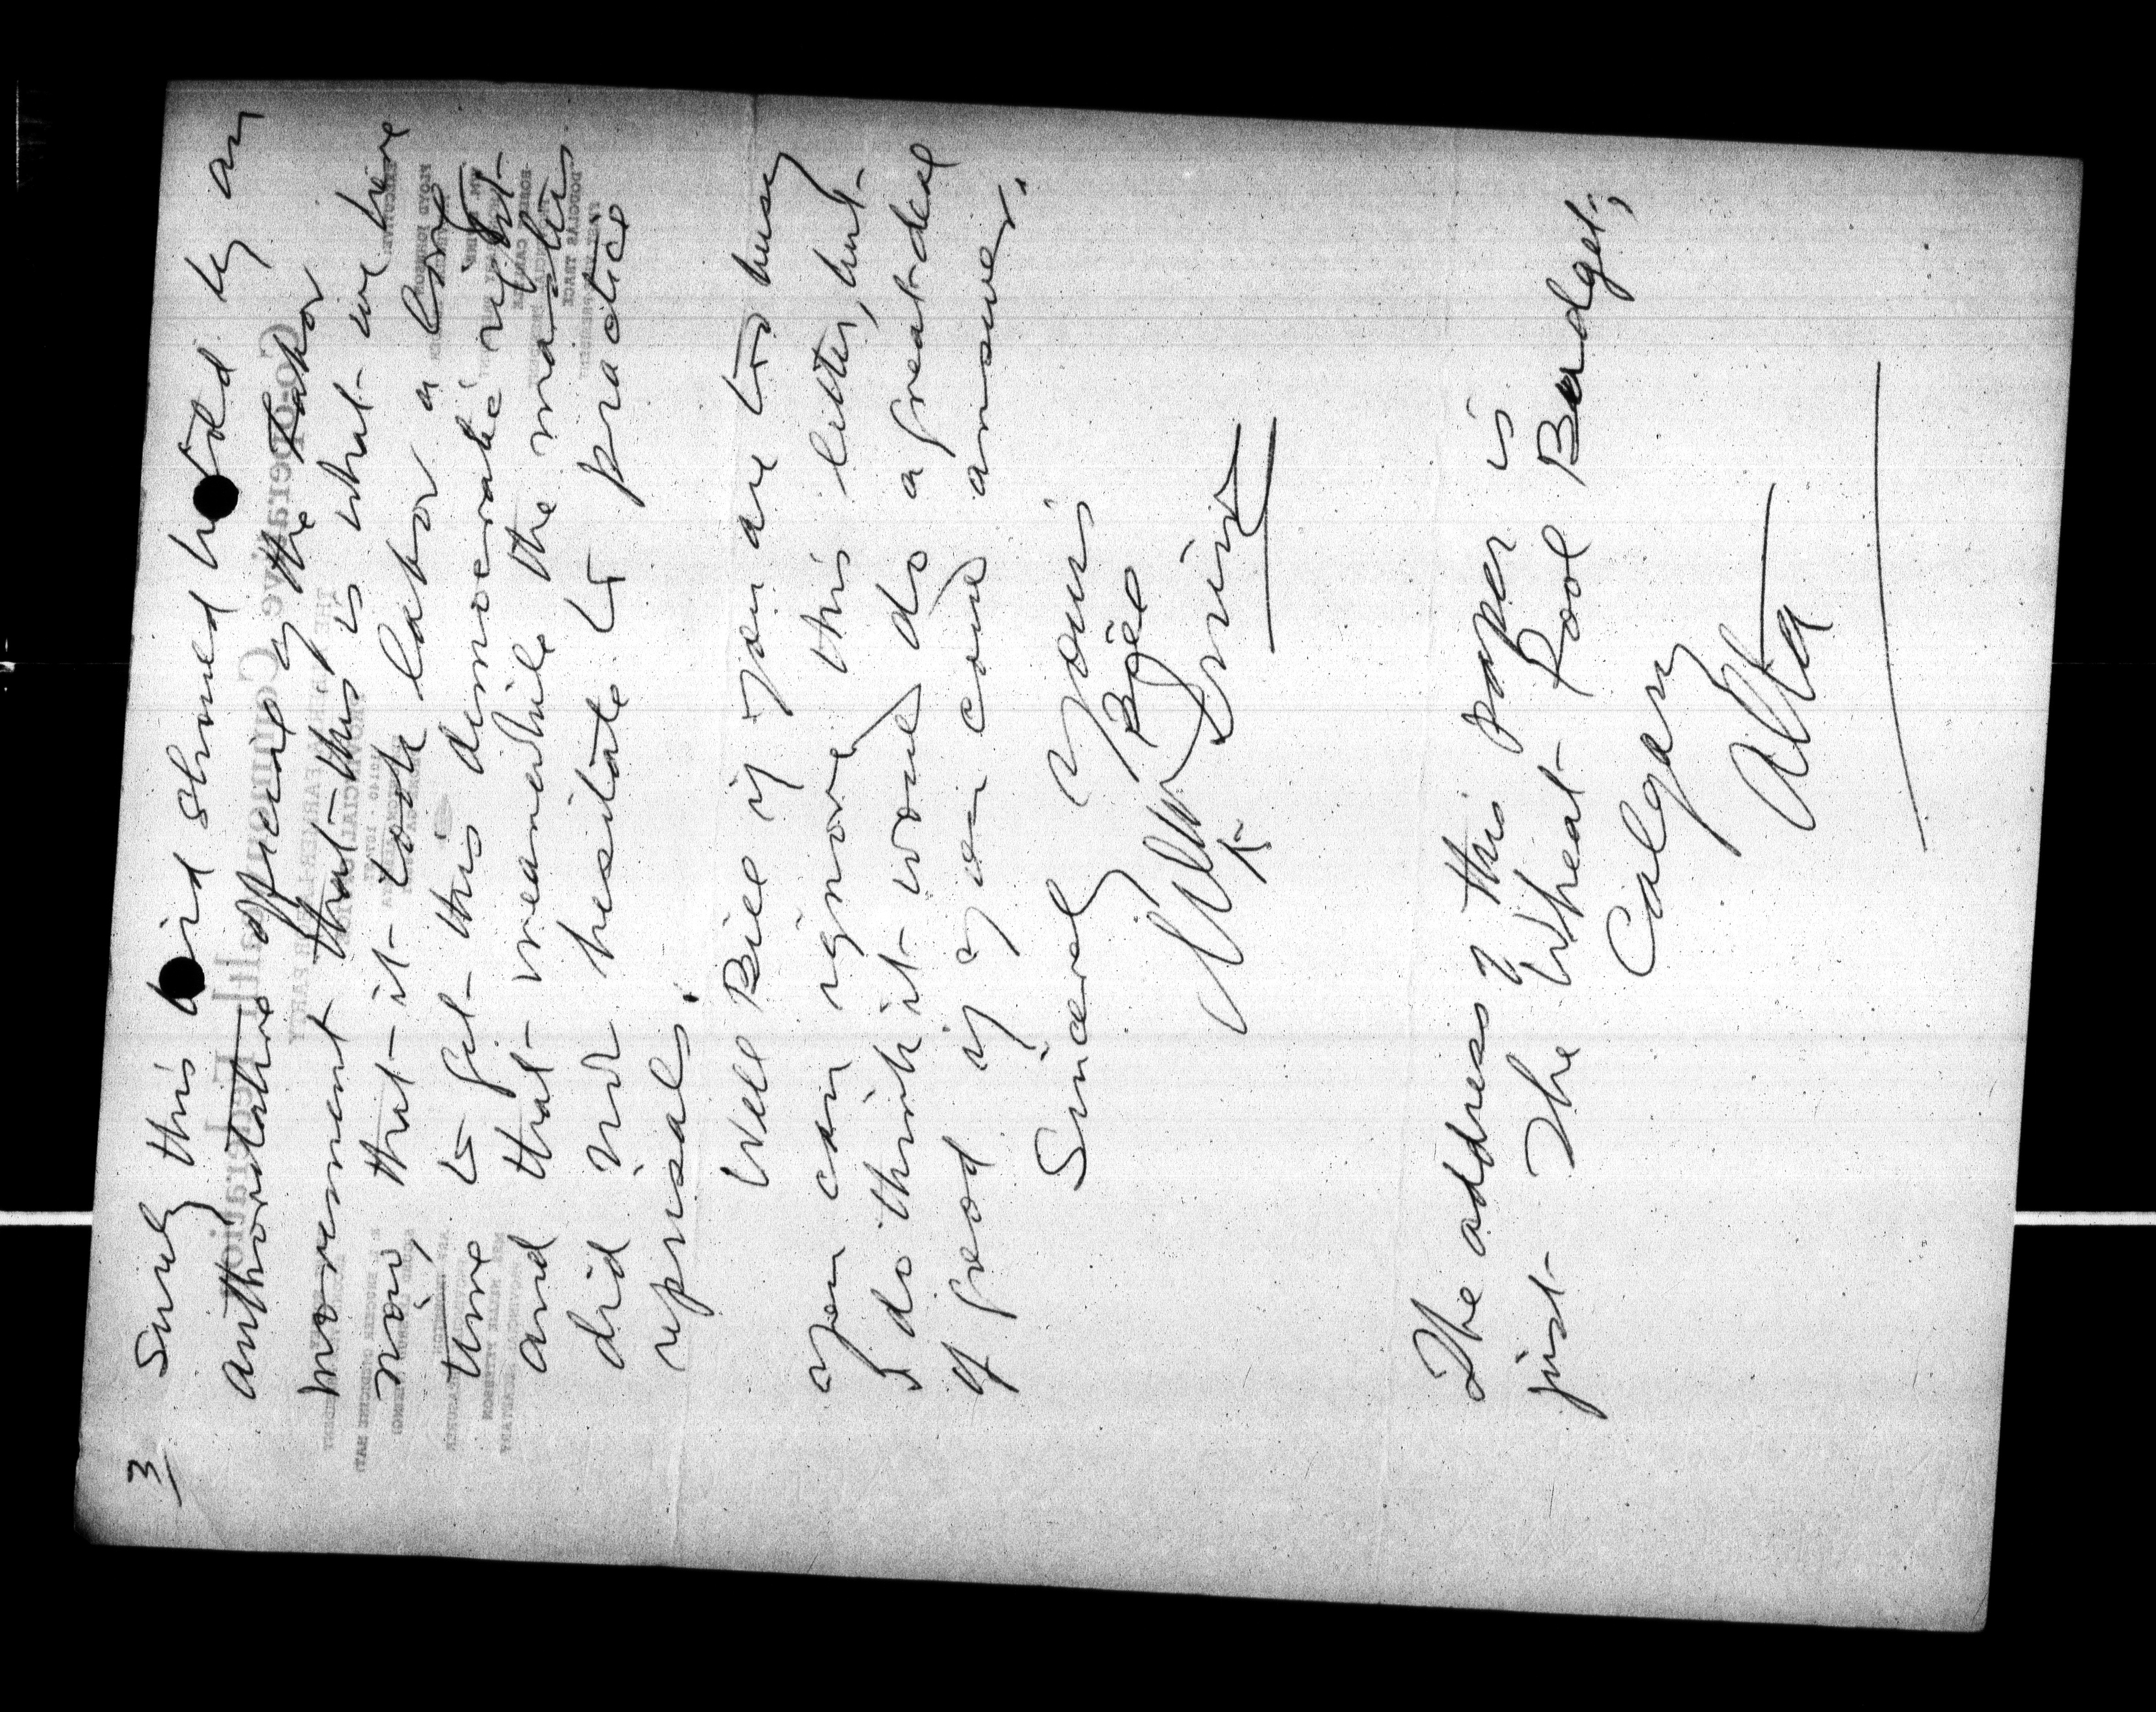 3/
Surely this bird should hold by an
authoritative official of the Labor
movement that this is what we have
now, that it took labor a long
time to get this democratic right
and that meanwhile the masters
did not hesitate to practice
reprisals.
Well Bill if you are too busy
you can ignore this letter, but
I do think it would do a great deal
of good if you could answer.
Sincerely Yours
Bill
Irvine
The address of this paper is
just The Wheat Pool Budget,
Calgary
Alta